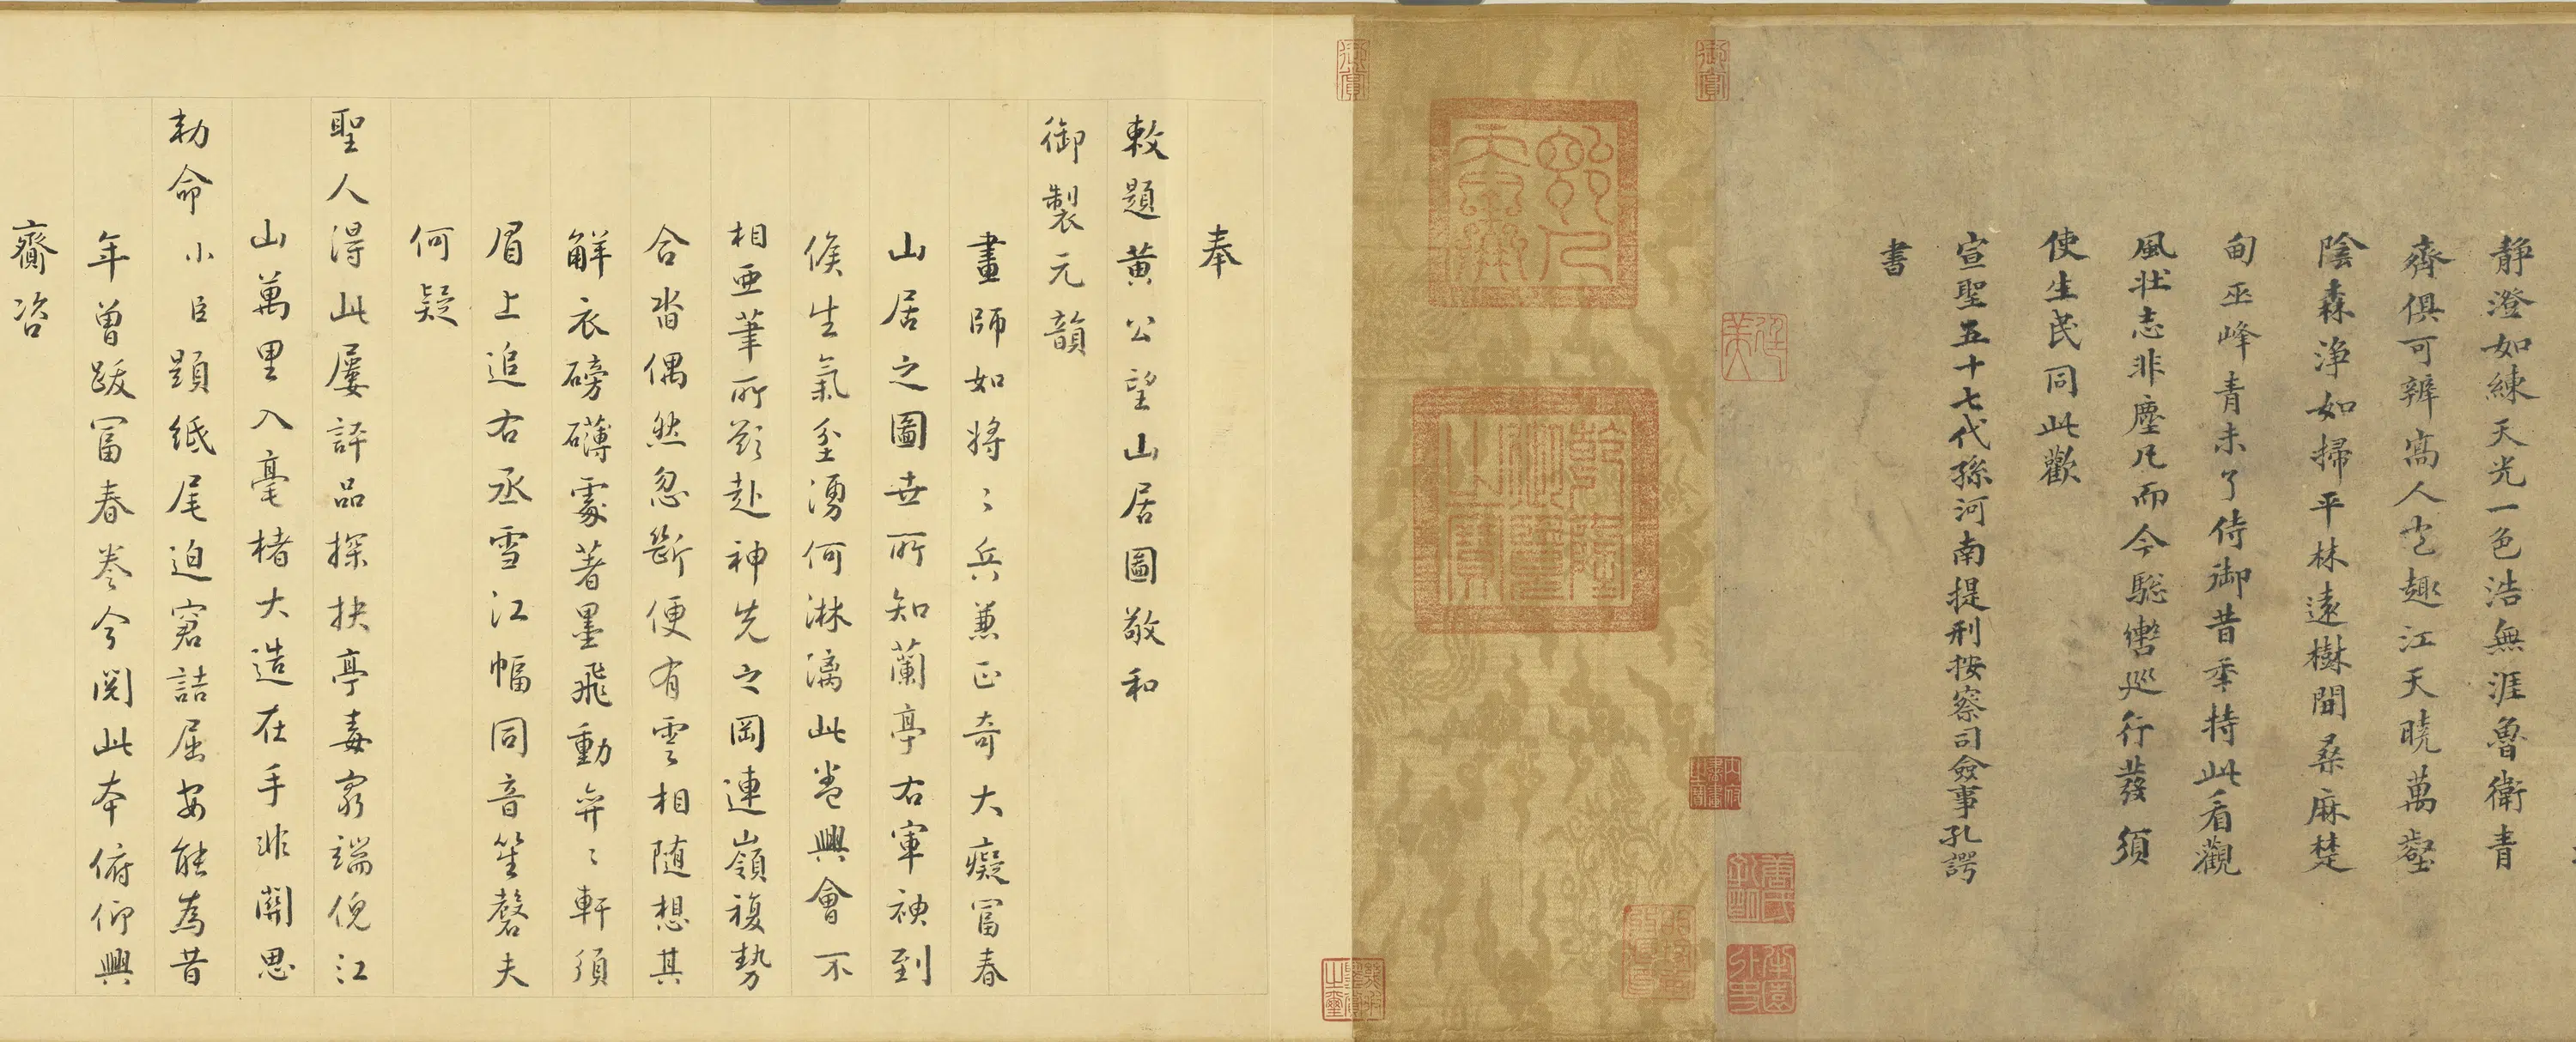 靜澄如練天光一色浩無涯魯衛青
齊俱可辨寫人宅趣江天曉萬壑
陰森淨如掃平林遠樹間桑麻楚
甸巫峰青未了侍御昔年持此看觀
風壯志非塵凡而今驄轡巡行發須
使生民同此歡
宣聖五十七代孫河南提刑按察司僉事孔諤
書
御賞
御賞
乾隆御覽之寶
奉
敕題黃公望山居圖敬和
御製元韻
畫師如將〻兵兼正奇大癡富春
山居之圖世所知蘭亭右軍禊到
候生氣坌湧何淋漓此卷興會不
相亞筆所欲赴神先之岡連嶺複勢
合沓偶然忽斷便有雲相隨想其
解衣磅礴處著墨飛動奔〻軒須
眉上追右丞雪江幅同音笙磬夫
何疑
聖人得此屢評品探抉亭毒窮端倪江
山萬里入毫楮大造在手非關思
勅命小臣題紙尾迫窘詰屈安能為昔
年曾跋富春卷今閱此本俯仰興
齎咨